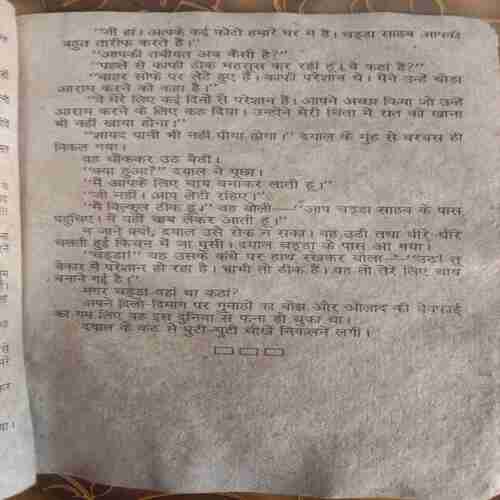 "जी हां। आपके कई फोटो हमारे घर में हैं। चड्ढा साहब आपकी
बहुत तारीफ करते हैं।"
"आपकी तबीयत अब कैसी है?"
"पहले से काफी ठीक महसूस कर रही हूं। वे कहां हैं?"
"बाहर सोफे पर लेटे हुए हैं। काफी परेशान थे। मैंने उन्हें थोड़ा
आराम करने को कहा है।"
"वे मेरे लिए कई दिनों से परेशान हैं। आपने अच्छा किया जो उन्हें
आराम करने के लिए कह दिया। उन्होंने मेरी चिंता में रात को खाना
भी नहीं खाया होगा।"
"शायद पानी भी नहीं पीया होगा।" दयाल के मुंह से बरबस ही
निकल गया।
वह चौंककर उठ बैठी।
"क्या हुआ?" दयाल ने पूछा।
"मैं आपके लिए चाय बनाकर लाती हूं।"
"जी नहीं। आप लेटी रहिए।"
"मैं बिल्कुल ठीक हूं।" वह बोली—"आप चड्ढा साहब के पास
पहुंचिए। मैं वहीं चाय लेकर आती हूं।"
न जाने क्यों, दयाल उसे रोक न सका। वह उठी तथा धीरे-धीरे
चलती हुई किचन में जा घुसी। दयाल चड्ढा के पास आ गया।
"चड्ढा!" वह उसके कंधे पर हाथ रखकर बोला—"उठ! तू
बेकार में परेशान हो रहा है। भाभी तो ठीक हैं। वह तो तेरे लिए चाय
बनाने गई है।"
मगर चड्ढा वहां था कहां?
अपने दिलो-दिमाग पर गुनाहों का बोझ और औलाद की बेवफाई
का गम लिए वह इस दुनिया से फना हो चुका था।
दयाल के कंठ से घुटी-घुटी चीखें निकलने लगीं।